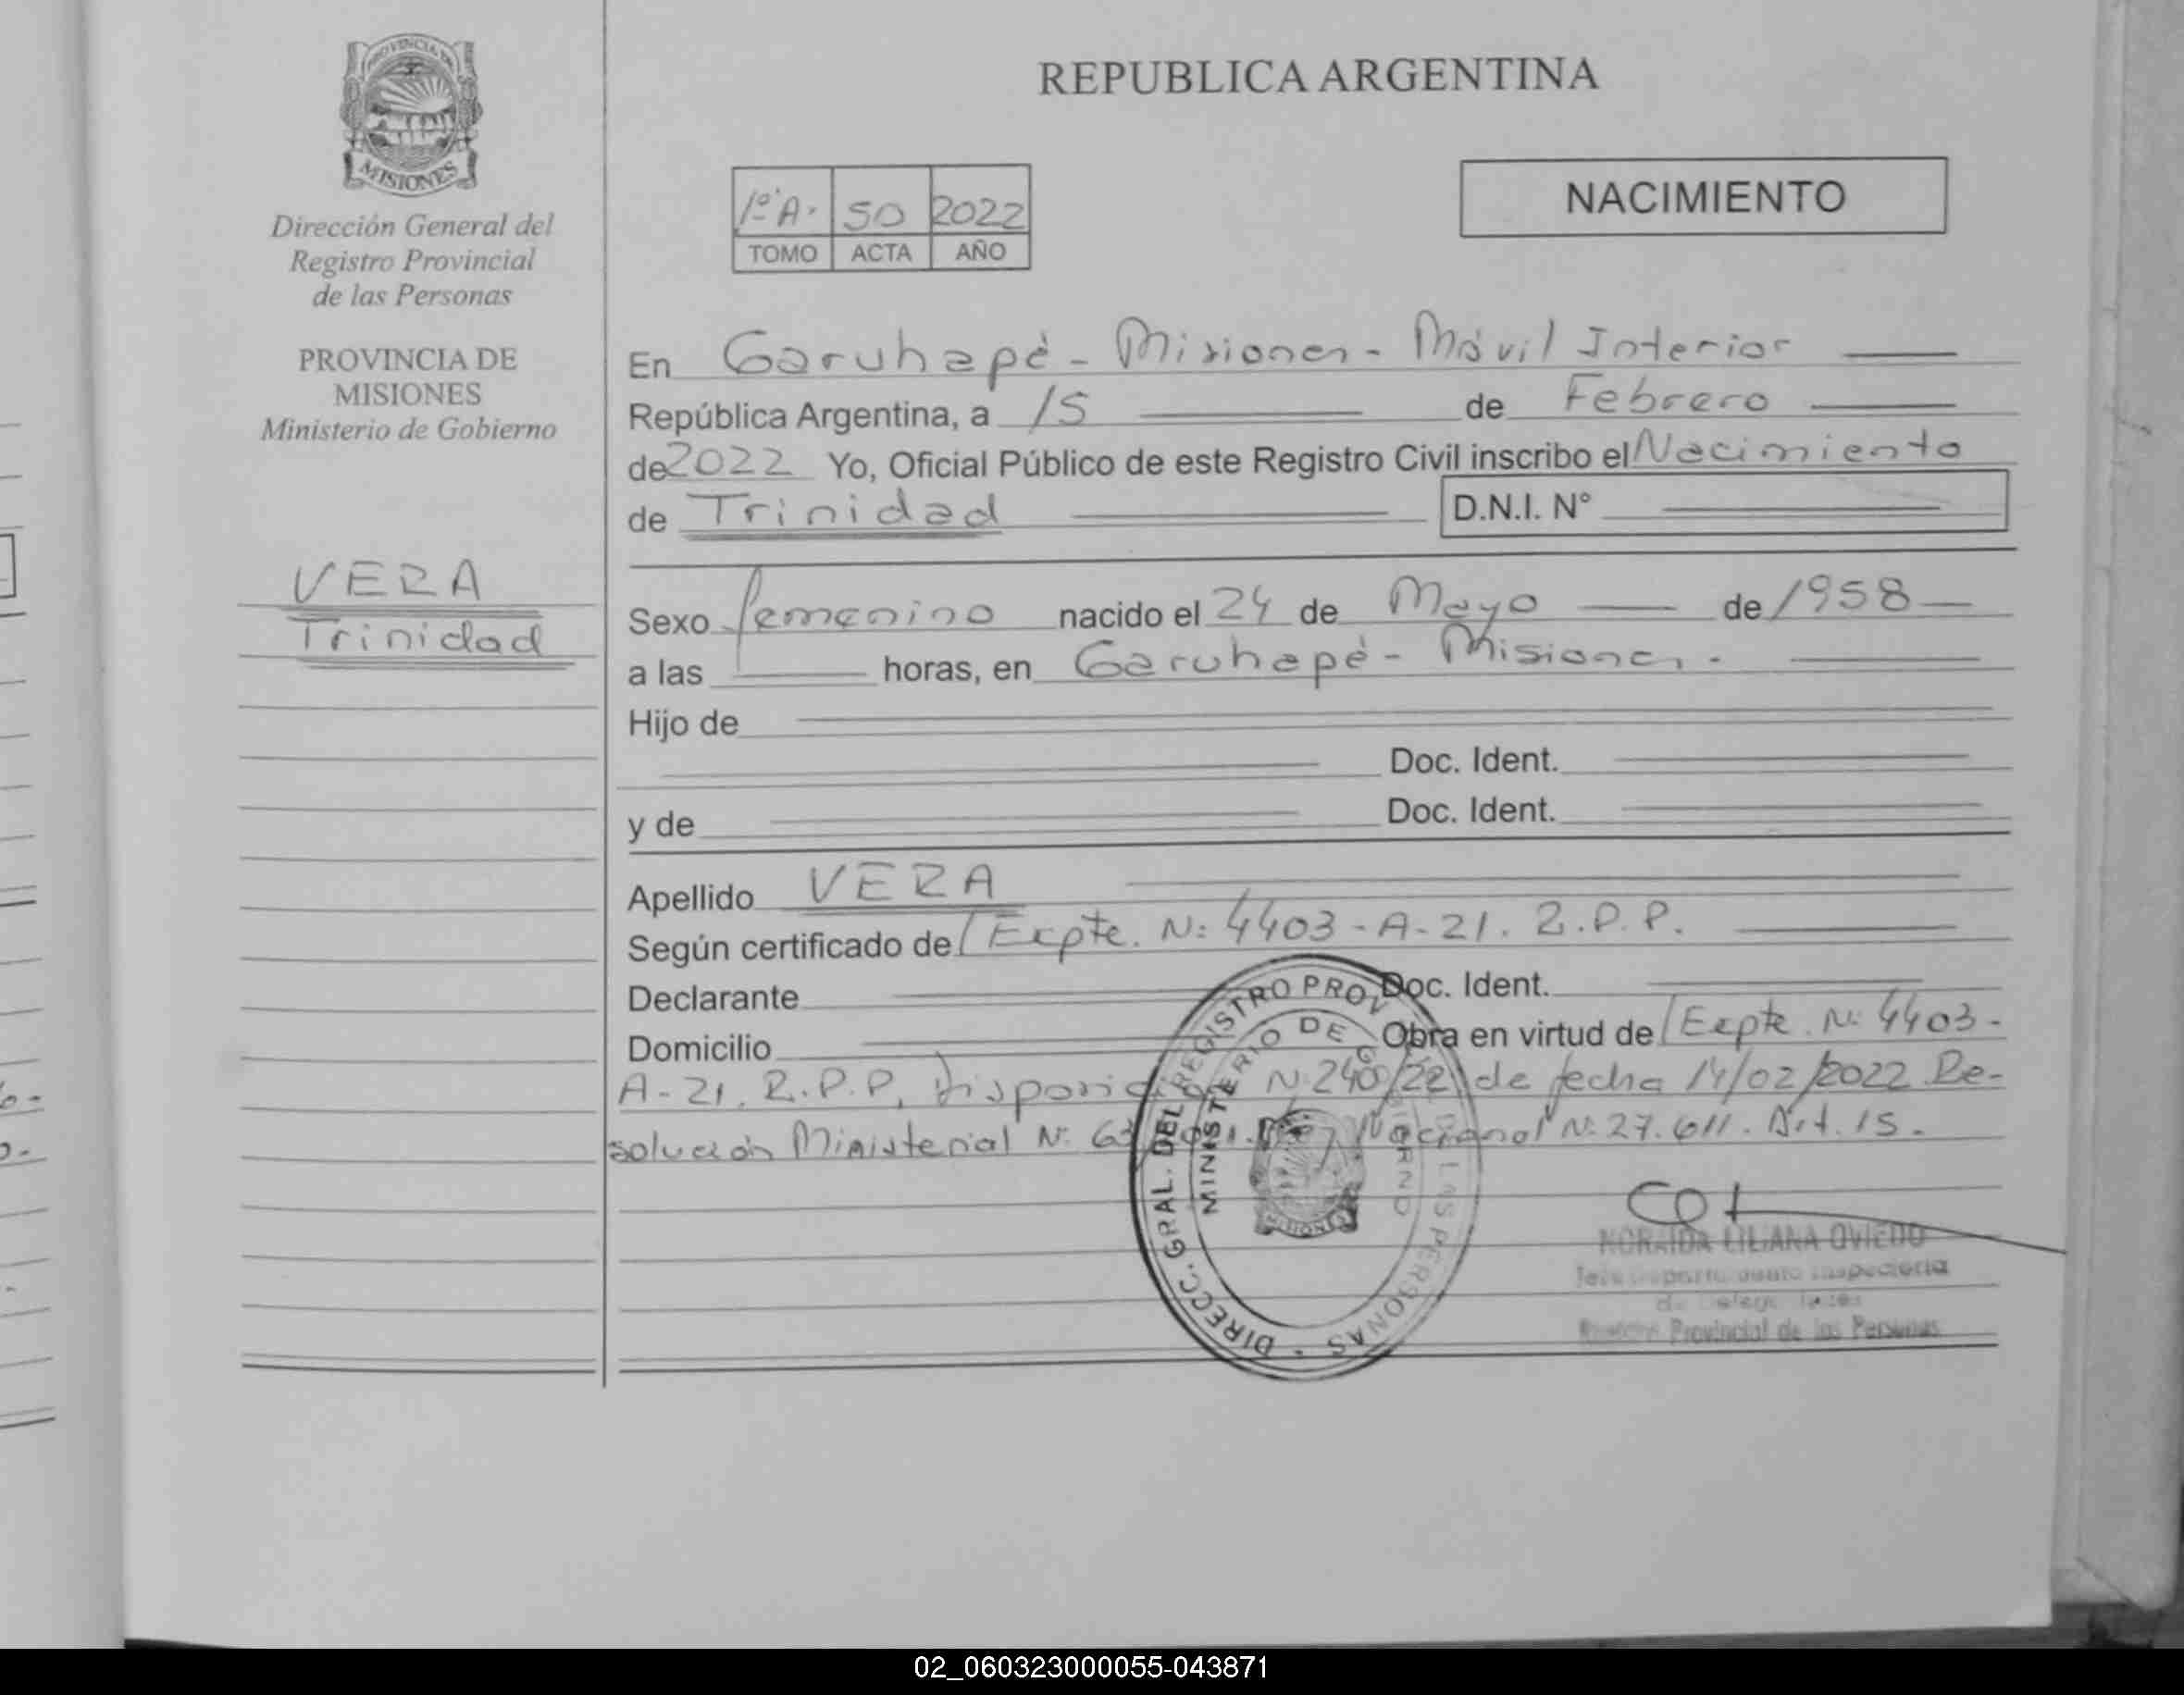 PROVINCIA DE
MISIONES
Dirección General del
Registro Provincial
de las Personas
PROVINCIA DE
MISIONES
Ministerio de Gobierno
VERA
Trinidad
REPUBLICA ARGENTINA
1º A. 50 2022
TOMO ACTA AÑO
NACIMIENTO
En Garuhapé - Misiones - Móvil Interior
República Argentina, a 15 de Febrero
de 2022 Yo, Oficial Público de este Registro Civil inscribo el Nacimiento
de Trinidad D.N.I. N°
Sexo femenino nacido el 24 de Mayo de 1958
a las horas, en Garuhapé - Misiones.
Hijo de
Doc. Ident.
y de Doc. Ident.
Apellido VERA
Según certificado de Expte. N: 4403-A-21. R.P.P.
Declarante Doc. Ident.
Domicilio Obra en virtud de Expte. N: 4403-
A-21. R.P.P. Disposición N: 240/22 de fecha 14/02/2022 Re-
solución Ministerial N: Ley Nacional N: 27.611. Art. 15.
DIRECC. GRAL. DEL REGISTRO PROV. DE LAS PERSONAS
MINISTERIO DE GOBIERNO
MISIONES
NORAIDA LILIANA OVIEDO
Jefe Departamento Inspectoria
de
Provincial de las Personas
02_060323000055-043871